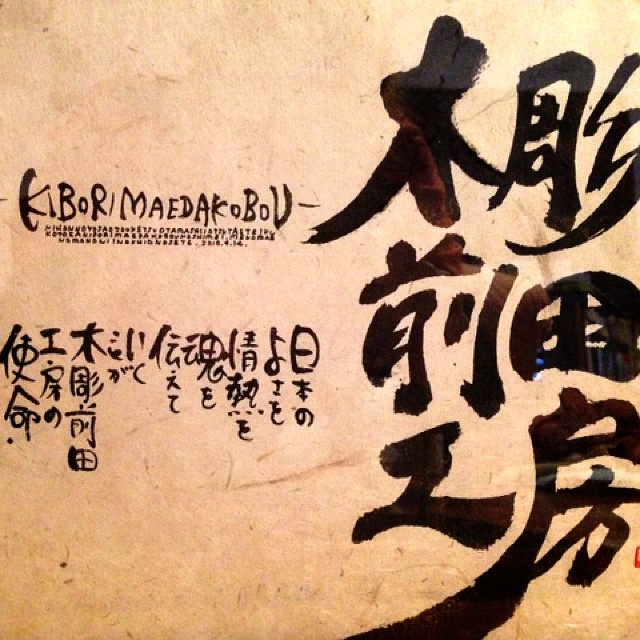 木彫
前田
工房
KIBORI MAEDAKOBOU
日本の
よさを
情熱を
魂を
伝えて
いく
ことが
木彫前田
工房の
使命.